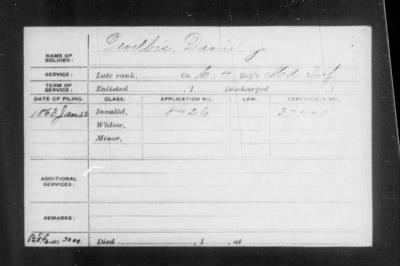 NAME OF SOLDIER: Devilbis, Daniel J
SERVICE: Late rank, Co. Reg't Md. Inf
TERM OF SERVICE: Enlisted , 1 Discharged , 1
DATE OF FILING. CLASS. APPLICATION NO. LAW. CERTIFICATE NO.
1863 Jan 22 Invalid, 8426
Widow,
Minor,
ADDITIONAL SERVICES:
REMARKS:
Died , 1 , at